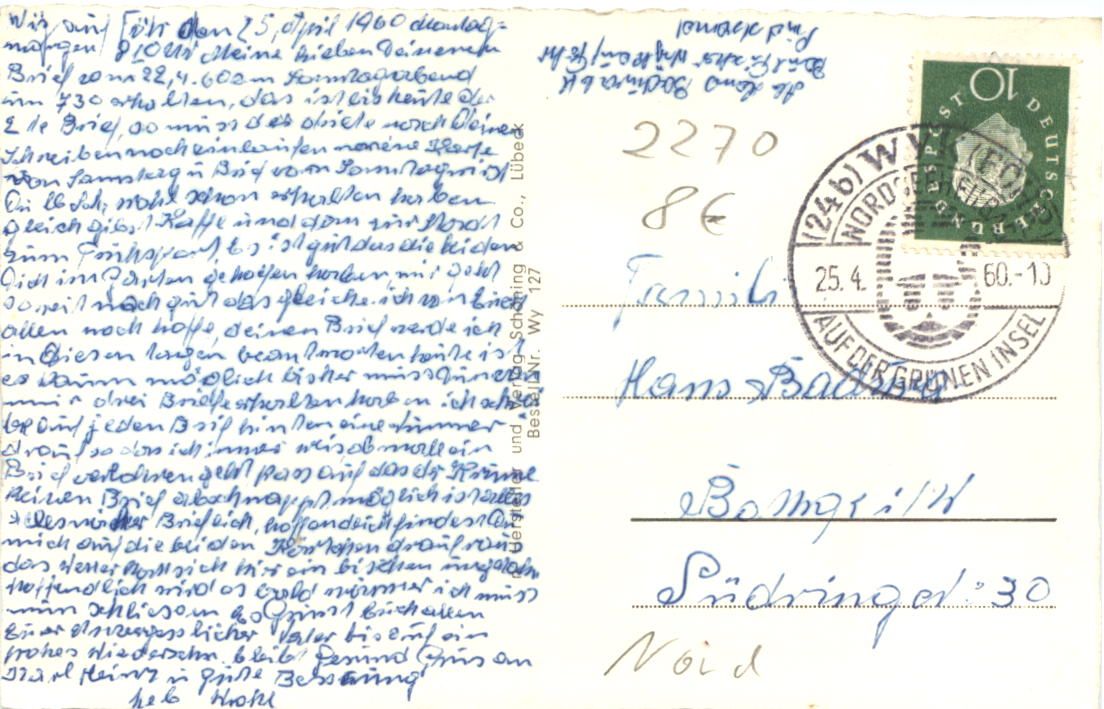 Wyk auf Föhr den 25, April 1960 Montag=
morgen 810 Uhr Meine Lieben Deinen
Brief vom 22,4.60 am Samstagabend
um 730 erhalten, das ist bis heute der
2 te Brief, so müss der dritte noch Deine
Schreiben noch einlaufen meine Karte
von Samstag u Brief vom Samstag wirst
Du wohl schon erhalten haben
gleich gibst Kaffe und dann zur Nordst
zum, es ist gut das die beiden
Dich im Garten geholfen haben, mir geht
soweit noch gut das gleiche ich von Euch
allen noch hoffe, deinen Brief werde ich
in diesen tagen beantworten heute ist
es kaum möglich bisher müsst Ihr von
mir drei Briefe erhalten haben ich schrei
be auf jeden Brief hinten eine Nummer
drauf so das ich immer weis ob mal ein
Brief verloren geht pass auf das dr
keinen Brief abschnappt möglich ist alles
Brieflich, hoffendlich findest Du
mich auf die beiden Karten drauf raus
das Wetter hatt sich hir ein bischen
hoffendlich wird es bald wärmer ich müss
nun schliesen es Grüsst Euch allen
Euer Unvergesslicher Vater bis auf ein
frohes Wiedersehn bleibt Gesund Grüs an
Karl Heinz u güte Besserung
Leb Wohl
Hersteller und Verlag Schöning & Co., Lübeck
Bestell-Nr. Wy 127
2270
8€
DEUTSCHE BUNDESPOST
10
(24b) WYK (FÖHR)
NORDSEEHEILBAD
25.4. 60.-10
AUF DER GRÜNEN INSEL
Familie
Hans
Bottrop i/W
Südringstr: 30